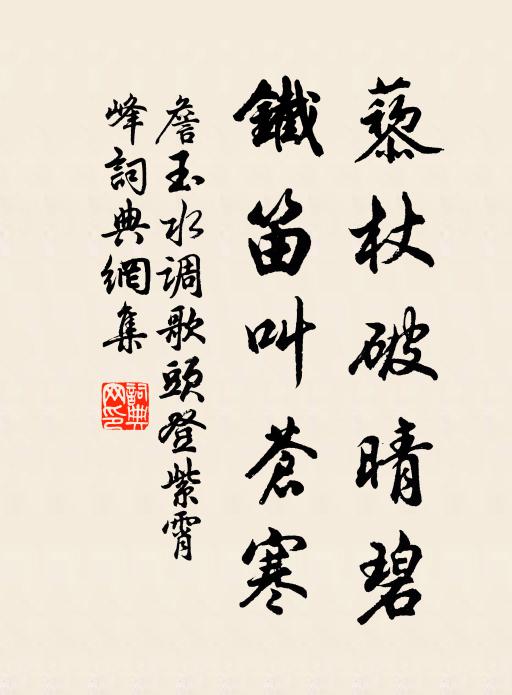 藜杖破晴碧
鐵笛叫蒼寒
詹玉水调歌頭登紫霄
峰詞典網集
詞典
网印